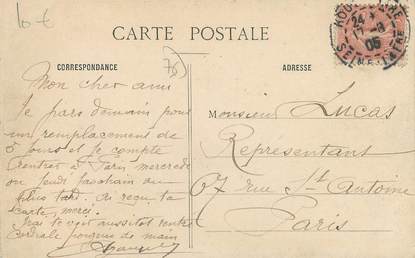 10 €
CARTE POSTALE
CORRESPONDANCE
ADRESSE
76
24
17-8
05
Mon cher ami
Je pars demain pour
un remplacement de
5 jours et je compte
rentrer à Paris mercredi
ou jeudi prochain au
plus tard. Ai reçu ta
carte, merci.
te voir aussitôt rentré
Cordiale poignée de main
Monsieur Lucas
Représentant
67 rue St Antoine
Paris